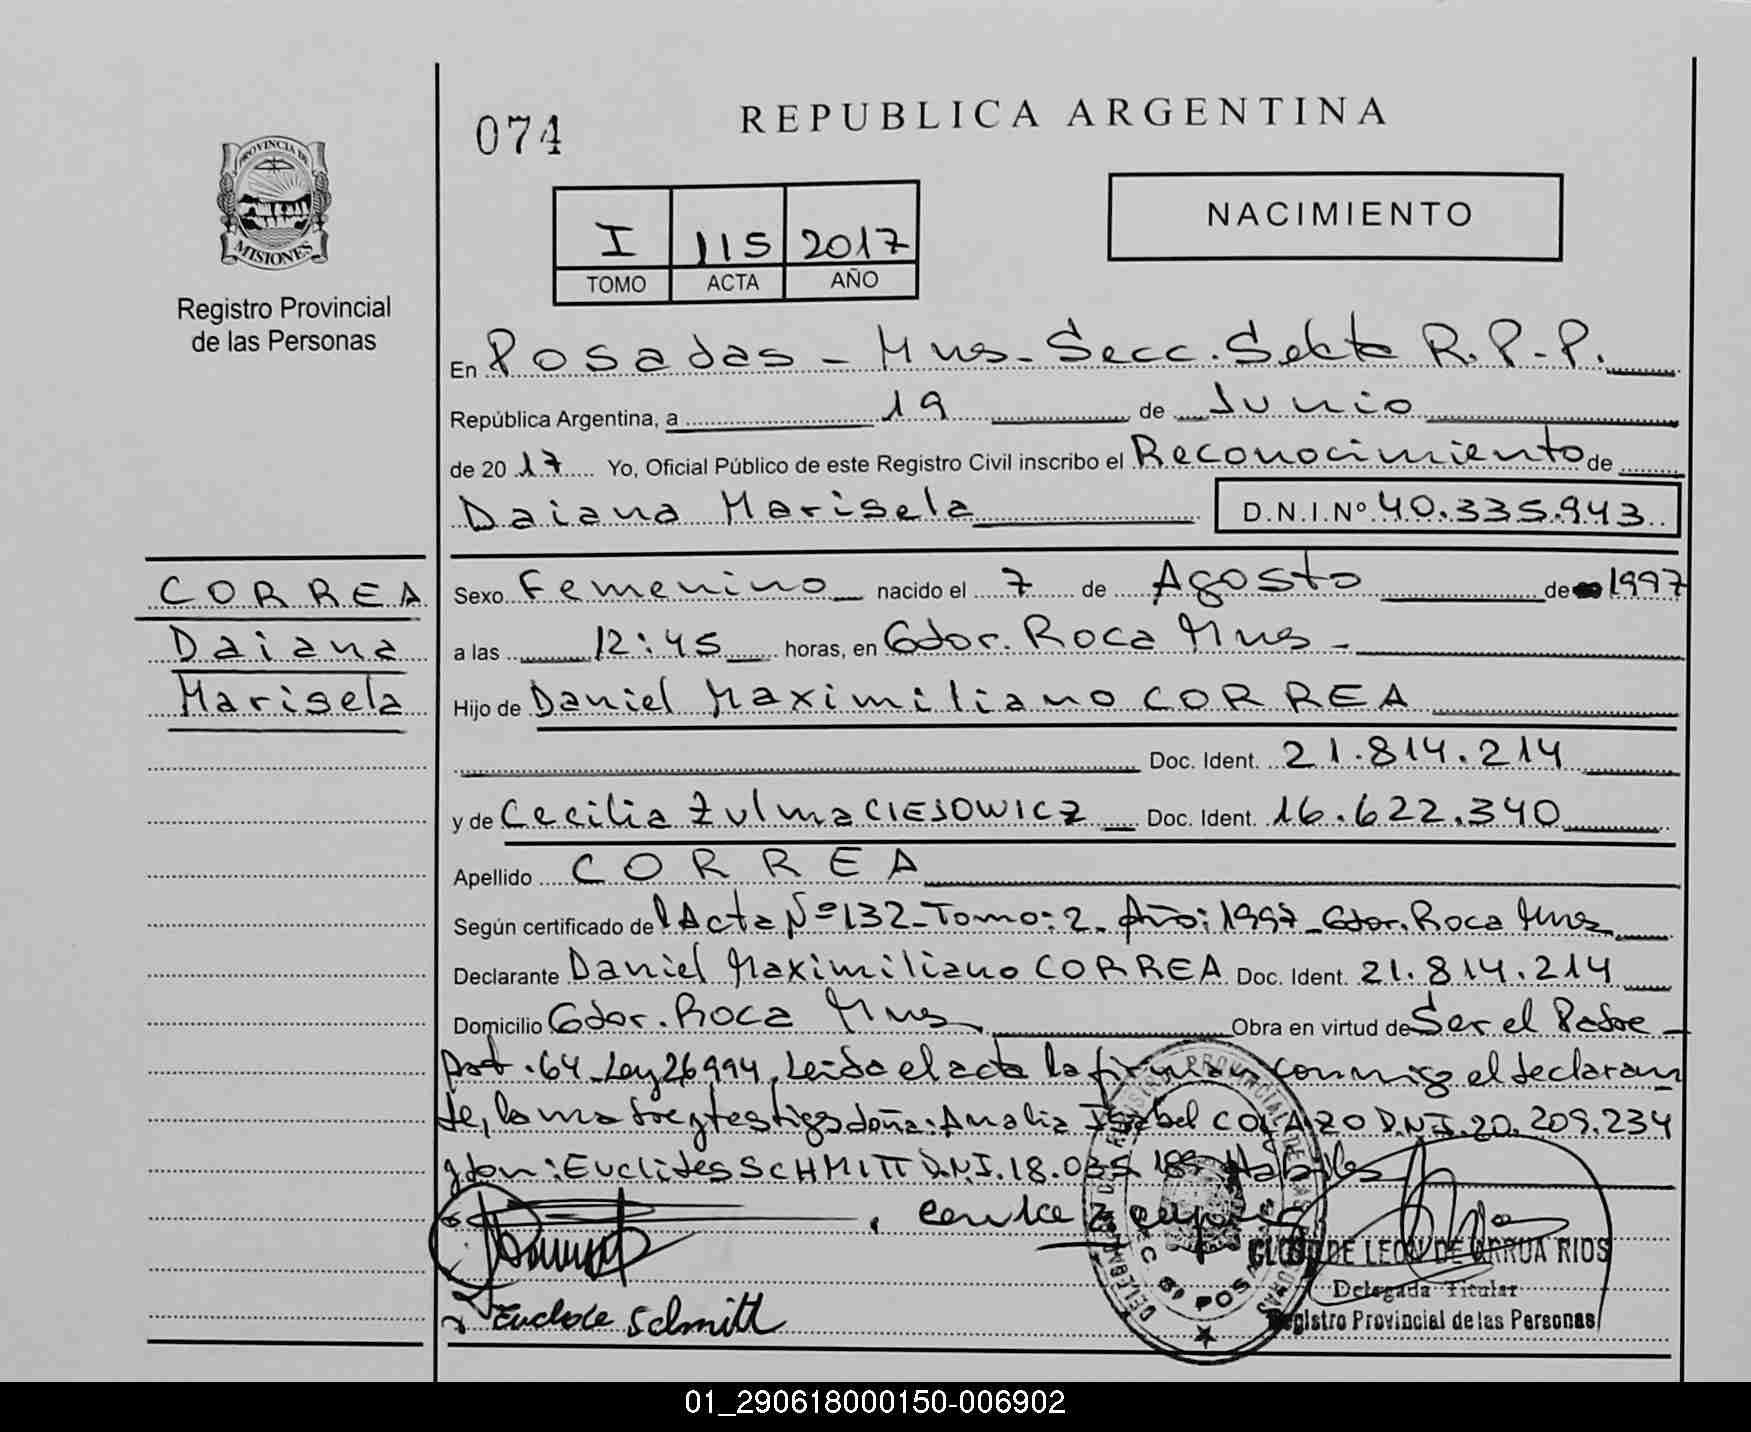 074
REPUBLICA ARGENTINA
PROVINCIA DE
MISIONES
Registro Provincial
de las Personas
I 115 2017
TOMO ACTA AÑO
NACIMIENTO
En Posadas - Mnes - Secc. Sekta R.P.P.
República Argentina, a 19 de Junio
de 2017 Yo, Oficial Público de este Registro Civil inscribo el Reconocimiento de
Daiana Marisela D.N.I.Nº 40.335.943
CORREA
Daiana
Marisela
Sexo Femenino nacido el 7 de Agosto de 1997
a las 12:45 horas, en Gdor. Roca Mnes -
Hijo de Daniel Maximiliano CORREA
Doc. Ident. 21.814.214
y de Cecilia Zulma CIESOWICZ Doc. Ident. 16.622.340
Apellido CORREA
Según certificado del Acta Nº 132 - Tomo: 2 - Año: 1997 - Gdor. Roca Mnes
Declarante Daniel Maximiliano CORREA Doc. Ident. 21.814.214
Domicilio Gdor. Roca Mnes Obra en virtud de Ser el Padre -
Art. 64 - Ley 26994. Leida el acta la firman conmigo el declaran
te, la madre y testigos doña: Amalia Isabel COLAZO D.N.I. 20.209.234
y don: Euclides SCHMITT D.N.I. 18.035 Habiles
Schmitt
DE LEON DE ARRUA RIOS
Delegada Titular
Registro Provincial de las Personas
01_290618000150-006902